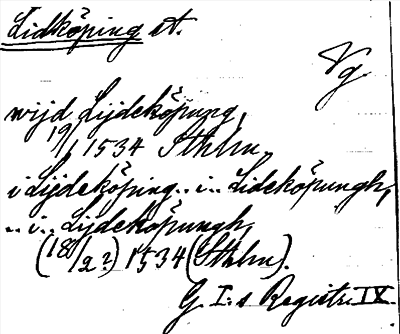 Lidköping st.
Vg
wijd Lijdeköpung,
19/1 1534 Sthlm.
i Lijdeköping.. i.. Lideköpungh,
.. i.. Lijdeköpungh,
(18/2?) 1534 (Sthlm).
G. I:s Registr. IX.